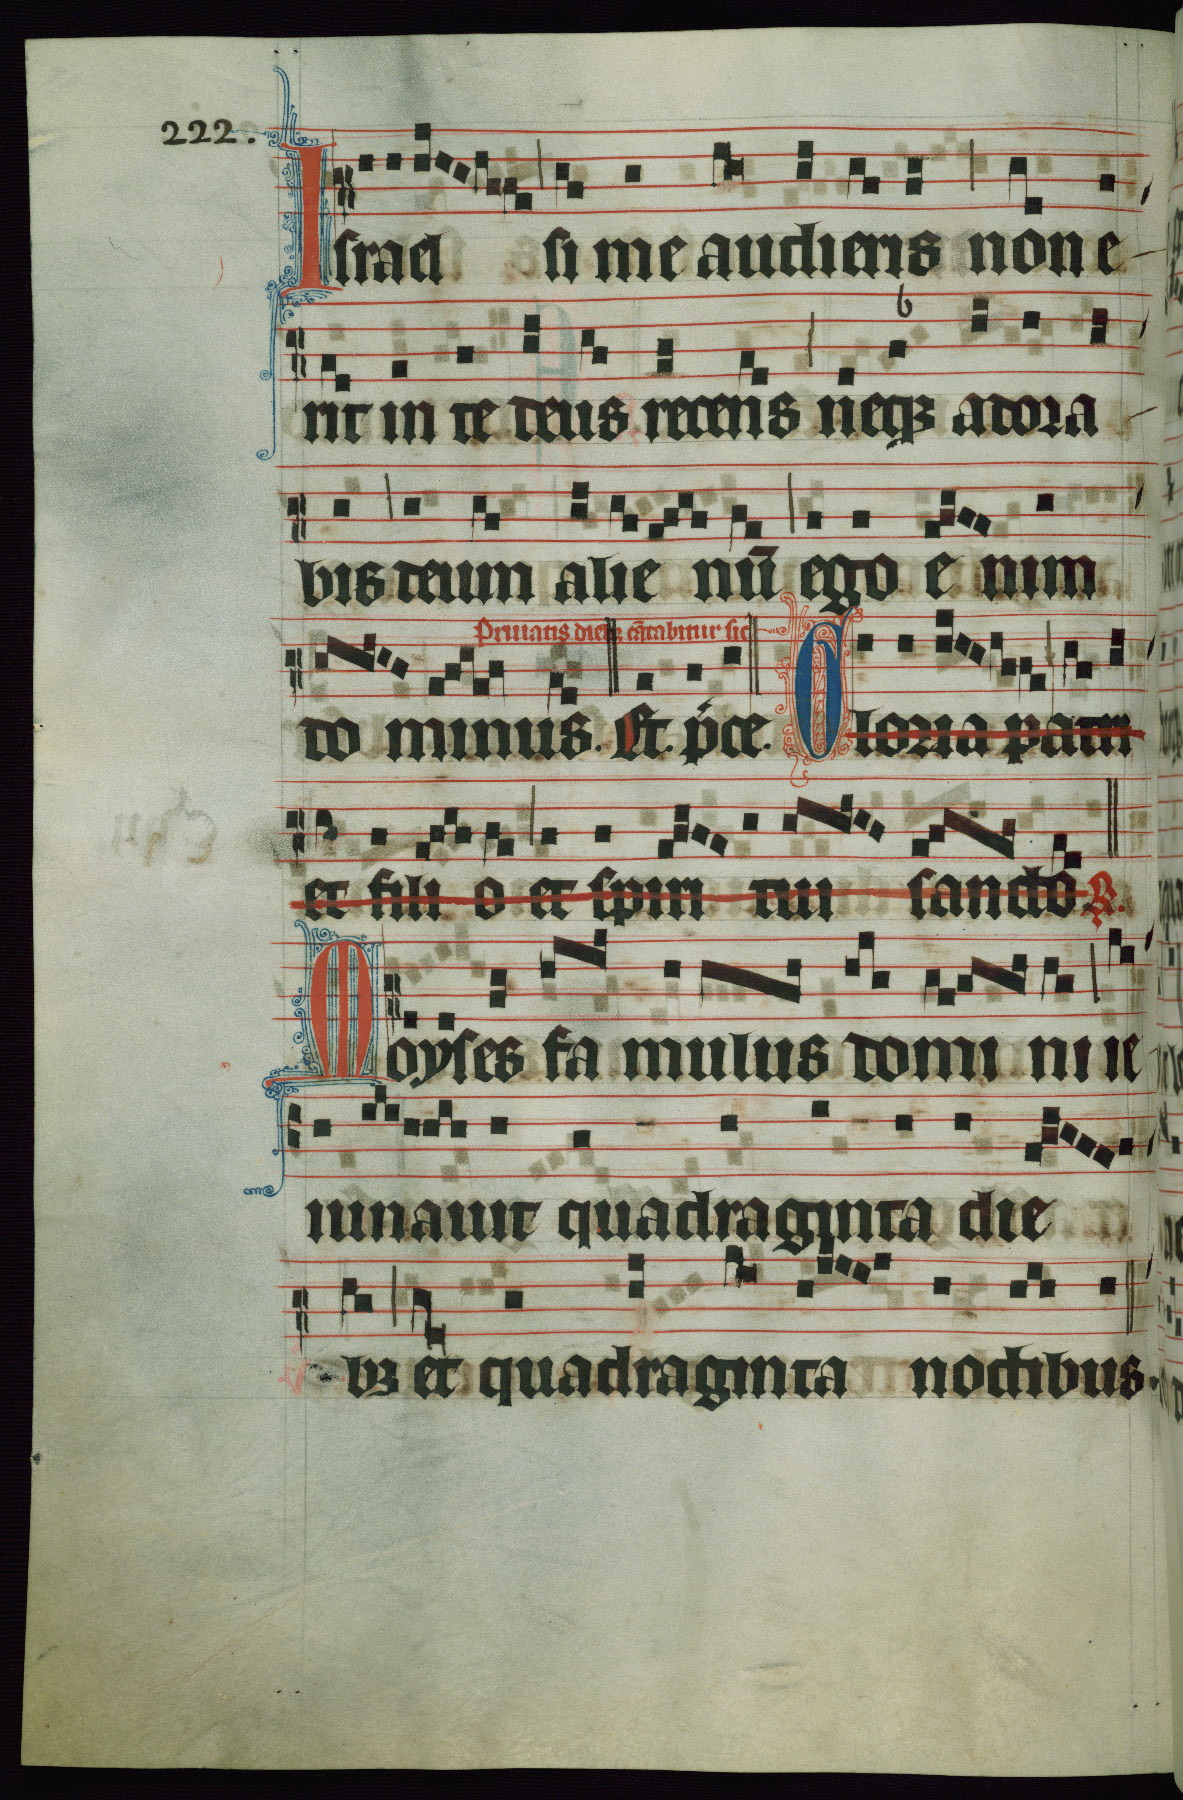 222.
Israel si me audieris non e-
rit in te deus recens neqꝫ adora-
bis deum alie nū ego e nim
Priuatis diebꝫ cātabitur sic
do minus. Et. p̄ce. Gloria patri
et fili o et spiri tui sancto ℟.
Moyses fa mulus domi ni ie
iunauit quadraginta die
bꝫ et quadraginta noctibus.